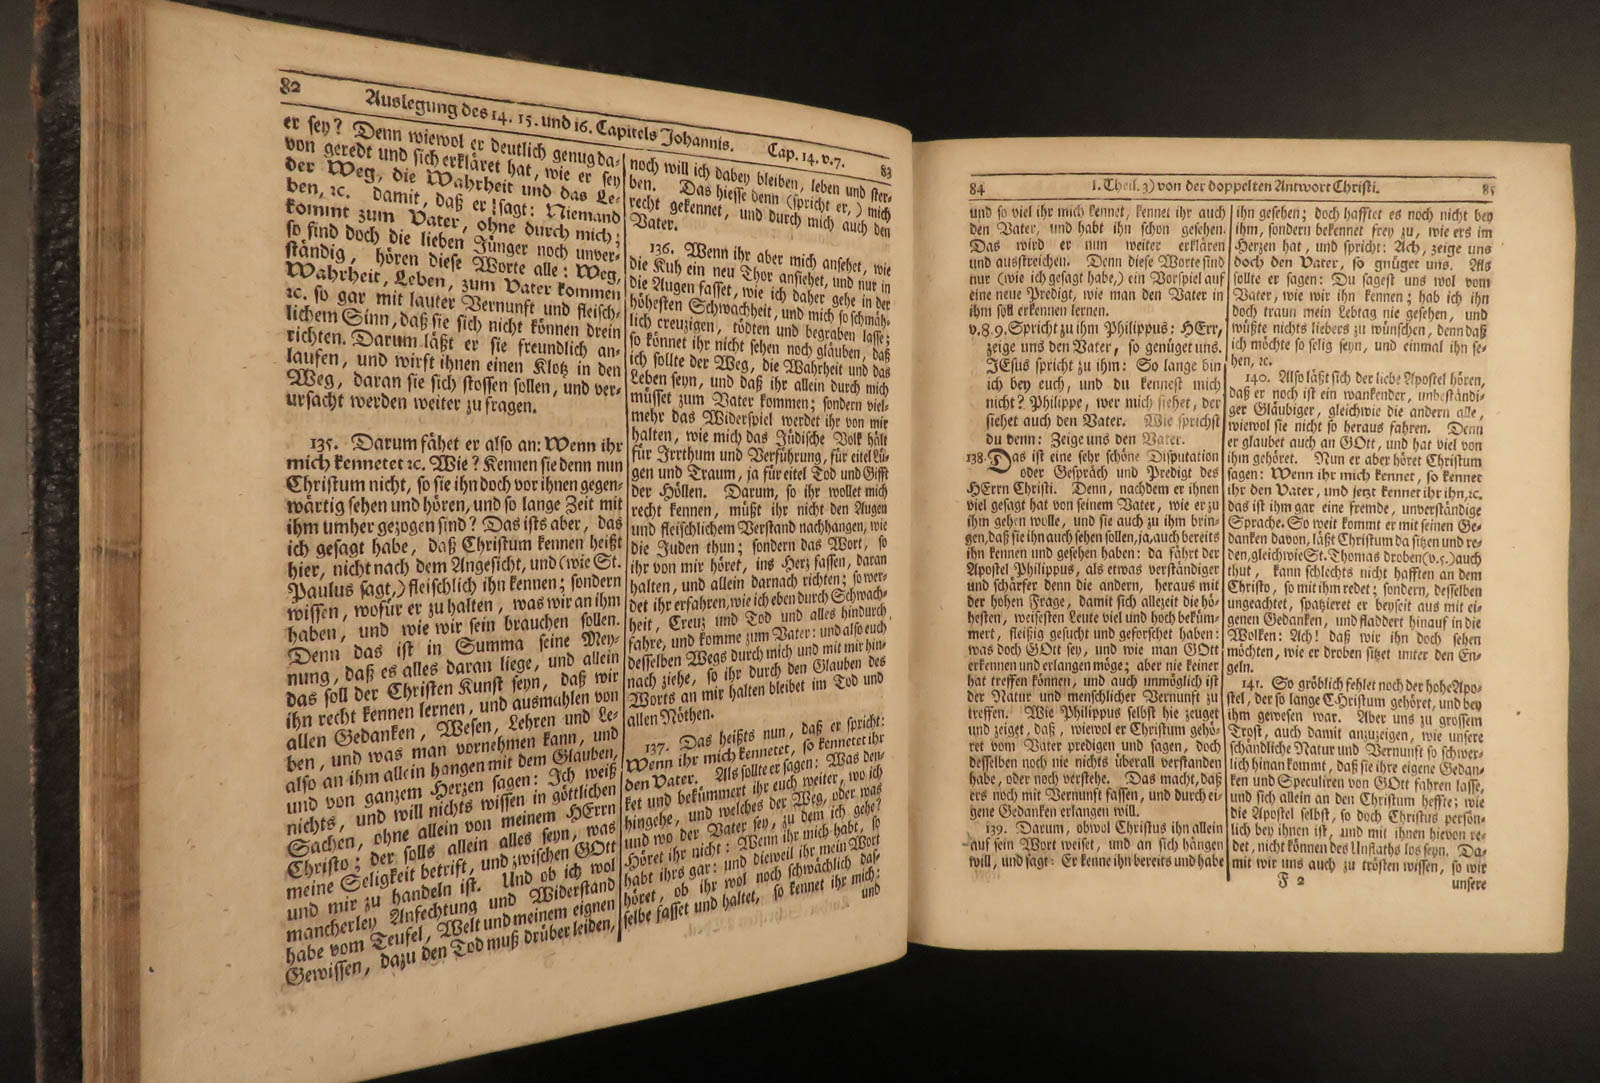 82
Auslegung des 14. 15. und 16. Capitels Johannis. Cap. 14. v. 7.
83
er sey? Denn wiewol er deutlich genug da-
von geredt und sich erkläret hat, wie er sey
der Weg, die Wahrheit und das Le-
ben, ꝛc. damit, daß er sagt: Niemand
kommt zum Vater, ohne durch mich;
so sind doch die lieben Jünger noch unver-
ständig, hören diese Worte alle: Weg,
Wahrheit, Leben, zum Vater kommen
ꝛc. so gar mit lauter Vernunft und fleisch-
lichem Sinn, daß sie sich nicht können drein
richten. Darum läßt er sie freundlich an-
laufen, und wirft ihnen einen Klotz in den
Weg, daran sie sich stossen sollen, und ver-
ursacht werden weiter zu fragen.
135. Darum fähet er also an: Wenn ihr
mich kennetet ꝛc. Wie? Kennen sie denn nun
Christum nicht, so sie ihn doch vor ihnen gegen-
wärtig sehen und hören, und so lange Zeit mit
ihm umher gezogen sind? Das ists aber, das
ich gesagt habe, daß Christum kennen heißt
hier, nicht nach dem Angesicht, und (wie St.
Paulus sagt,) fleischlich ihn kennen; sondern
wissen, wofür er zu halten, was wir an ihm
haben, und wie wir sein brauchen sollen.
Denn das ist in Summa seine Mey-
nung, daß es alles daran liege, und allein
das soll der Christen Kunst seyn, daß wir
ihn recht kennen lernen, und ausmahlen von
allen Gedanken, Wesen, Lehren und Le-
ben, und was man vornehmen kann, und
also an ihm allein hangen mit dem Glauben,
und von ganzem Herzen sagen: Ich weiß
nichts, und will nichts wissen in göttlichen
Sachen, ohne allein von meinem HErrn
Christo; der solls allein alles seyn, was
meine Seligkeit betrift, und zwischen GOtt
und mir zu handeln ist. Und ob ich wol
mancherley Anfechtung und Widerstand
habe vom Teufel, Welt und meinem eignen
Gewissen, dazu den Tod muß drüber leiden,
noch will ich dabey bleiben, leben und ster-
ben. Das hiesse denn (spricht er,) mich
recht gekennet, und durch mich auch den
Vater.
136. Wenn ihr aber mich ansehet, wie
die Kuh ein neu Thor ansiehet, und nur in
die Augen fasset, wie ich daher gehe in der
höhesten Schwachheit, und mich so schmäh-
lich creuzigen, tödten und begraben lasse;
so könnet ihr nicht sehen noch gläuben, daß
ich sollte der Weg, die Wahrheit und das
Leben seyn, und daß ihr allein durch mich
müsset zum Vater kommen; sondern viel-
mehr das Widerspiel werdet ihr von mir
halten, wie mich das Jüdische Volk hält
für Irrthum und Verführung, für eitel Lü-
gen und Traum, ja für eitel Tod und Gifft
der Höllen. Darum, so ihr wollet mich
recht kennen, müßt ihr nicht den Augen
und fleischlichem Verstand nachhangen, wie
die Juden thun; sondern das Wort, so
ihr von mir höret, ins Herz fassen, daran
halten, und allein darnach richten; so wer-
det ihr erfahren, wie ich eben durch Schwach-
heit, Creuz und Tod und alles hindurch
fahre, und komme zum Vater: und also euch
desselben Wegs durch mich und mit mir hin-
nach ziehe, so ihr durch den Glauben des
Worts an mir halten bleibet im Tod und
allen Nöthen.
137. Das heißts nun, daß er spricht:
Wenn ihr mich kennetet, so kennetet ihr
den Vater. Als sollte er sagen: Was den-
ket und bekümmert ihr euch weiter, wo ich
hingehe, und welches der Weg, oder was
und wo der Vater sey, zu dem ich gehe?
Höret ihr nicht: Wenn ihr mich habt, so
habt ihrs gar: und dieweil ihr mein Wort
höret, ob ihr wol noch schwächlich das-
selbe fasset und haltet, so kennet ihr mich:
und
84
I. Theil. 3) von der doppelten Antwort Christi.
85
und so viel ihr mich kennet, kennet ihr auch
den Vater, und habt ihn schon gesehen.
Das wird er nun weiter erklären
und ausstreichen. Denn diese Worte sind
nur (wie ich gesagt habe,) ein Vorspiel auf
eine neue Predigt, wie man den Vater in
ihm soll erkennen lernen.
v. 8. 9. Spricht zu ihm Philippus: HErr,
zeige uns den Vater, so genüget uns.
JEsus spricht zu ihm: So lange bin
ich bey euch, und du kennest mich
nicht? Philippe, wer mich siehet, der
siehet auch den Vater. Wie sprichst
du denn: Zeige uns den Vater.
138. Das ist eine sehr schöne Disputation
oder Gespräch und Predigt des
HErrn Christi. Denn, nachdem er ihnen
viel gesagt hat von seinem Vater, wie er zu
ihm gehen wolle, und sie auch zu ihm brin-
gen, daß sie ihn auch sehen sollen, ja, auch bereits
ihn kennen und gesehen haben: da fährt der
Apostel Philippus, als etwas verständiger
und schärfer denn die andern, heraus mit
der hohen Frage, damit sich allezeit die hö-
hesten, weisesten Leute viel und hoch beküm-
mert, fleißig gesucht und geforschet haben:
was doch GOtt sey, und wie man GOtt
erkennen und erlangen möge; aber nie keiner
hat treffen können, und auch unmöglich ist
der Natur und menschlicher Vernunft zu
treffen. Wie Philippus selbst hie zeuget
und zeiget, daß, wiewol er Christum gehö-
ret vom Vater predigen und sagen, doch
desselben noch nie nichts überall verstanden
habe, oder noch verstehe. Das macht, daß
ers noch mit Vernunft fassen, und durch ei-
gene Gedanken erlangen will.
139. Darum, obwol Christus ihn allein
auf sein Wort weiset, und an sich hängen
will, und sagt: Er kenne ihn bereits und habe
ihn gesehen; doch hafftet es noch nicht bey
ihm, sondern bekennet frey zu, wie ers im
Herzen hat, und spricht: Ach, zeige uns
doch den Vater, so gnüget uns. Als
sollte er sagen: Du sagest uns wol vom
Vater, wie wir ihn kennen; hab ich ihn
doch traun mein Lebtag nie gesehen, und
wüßte nichts liebers zu wünschen, denn daß
ich möchte so selig seyn, und einmal ihn se-
hen, ꝛc.
140. Also läßt sich der liebe Apostel hören,
daß er noch ist ein wankender, unbeständi-
ger Gläubiger, gleichwie die andern alle,
wiewol sie nicht so heraus fahren. Denn
er glaubet auch an GOtt, und hat viel von
ihm gehöret. Nun er aber höret Christum
sagen: Wenn ihr mich kennet, so kennet
ihr den Vater, und jetzt kennet ihr ihn, ꝛc.
das ist ihm gar eine fremde, unverständige
Sprache. So weit kommt er mit seinen Ge-
danken davon, läßt Christum da sitzen und re-
den, gleichwie St. Thomas droben (v. 5.) auch
thut, kann schlechts nicht hafften an dem
Christo, so mit ihm redet; sondern, desselben
ungeachtet, spatzieret er beyseit aus mit ei-
genen Gedanken, und fladdert hinauf in die
Wolken: Ach! daß wir ihn doch sehen
möchten, wie er droben sitzet unter den En-
geln.
141. So gröblich fehlet noch der hohe Apo-
stel, der so lange Christum gehöret, und bey
ihm gewesen war. Aber uns zu grossem
Trost, auch damit anzuzeigen, wie unsere
schändliche Natur und Vernunft so schwer-
lich hinan kommt, daß sie ihre eigene Gedan-
ken und Speculiren von GOtt fahren lasse,
und sich allein an den Christum heffte; wie
die Apostel selbst, so doch Christus persön-
lich bey ihnen ist, und mit ihnen hievon re-
det, nicht können des Unflaths los seyn. Da-
mit wir uns auch zu trösten wissen, so wir
F 2
unsere